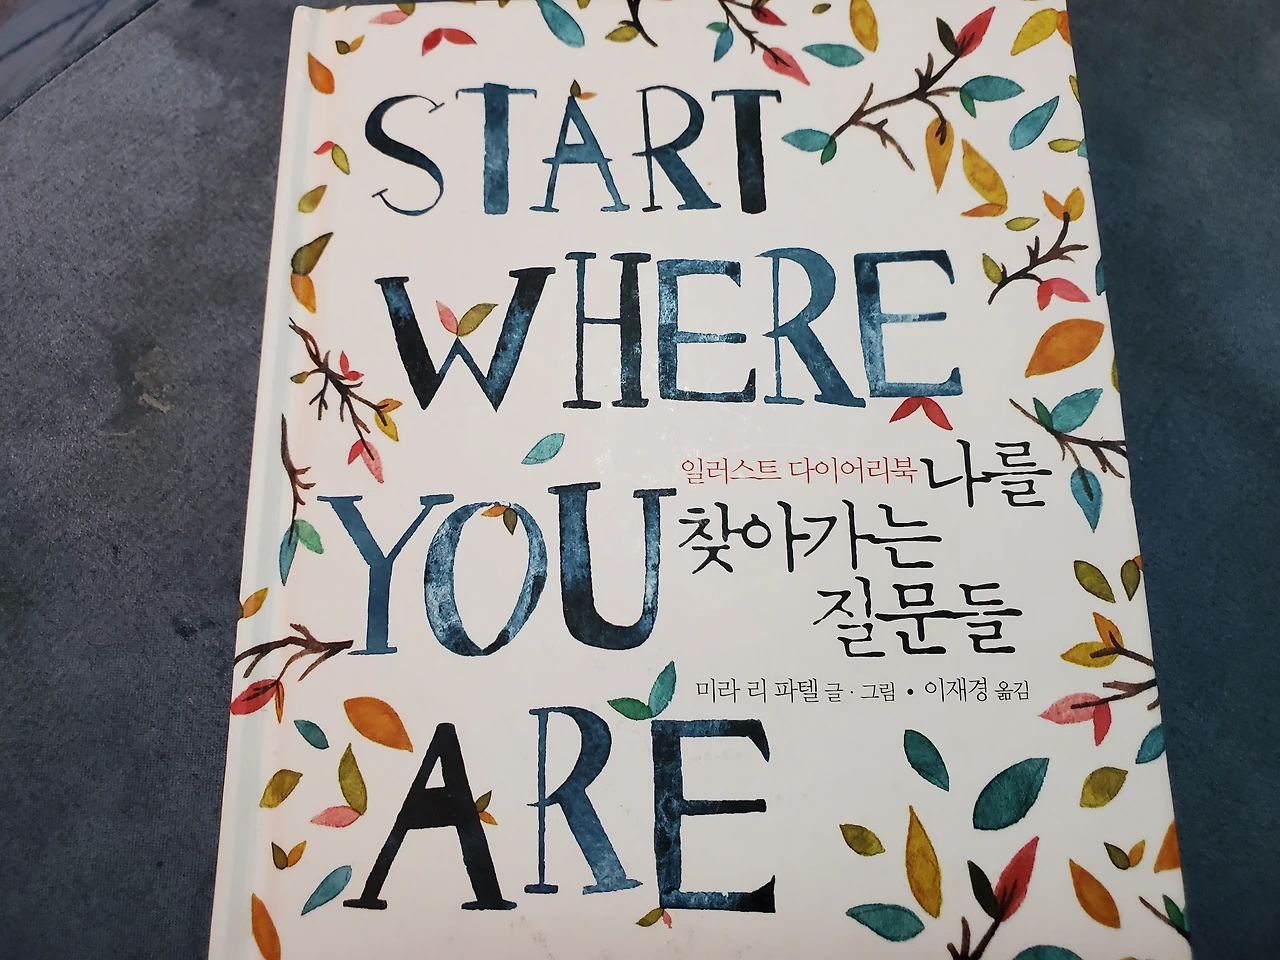 START
WHERE
YOU
일러스트 다이어리북 나를
찾아가는
질문들
미라 리 파텔 글·그림 • 이재경 옮김
ARE